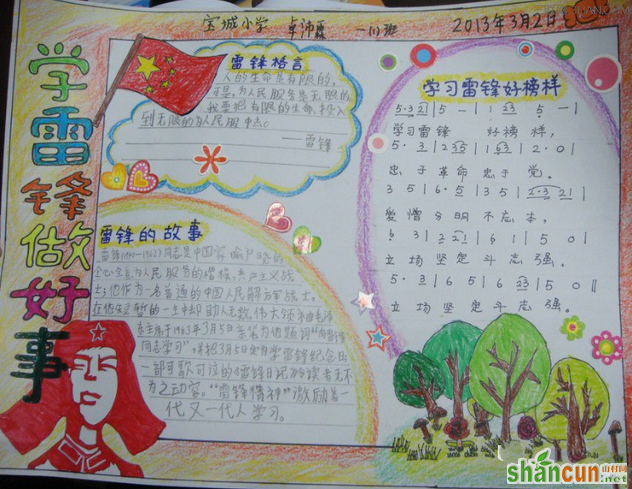 宝城小学 卓沛霖 一(1)班 2013年3月2日
学雷锋做好事
雷锋格言
人的生命是有限的,
可是,为人民服务是无限的
我要把有限的生命,投入
到无限的为人民服中去。
——雷锋
雷锋的故事
同志是中国家喻户晓的
全心全意为人民服务的楷模,共产主义战
士;他作为一名普通的中国人民解放军战士,
在他生短暂的一生中却助人无数,伟大领袖毛泽
东主席于1963年3月5日亲笔为他题词"向雷锋
同志学习",并把3月5日定为学雷锋纪念日
一部可歌可泣的《雷锋日记》令读者无不
为之动容。"雷锋精神"激励着一
代又一代人学习。
学习雷锋好榜样
5·3 2 | 5 — | 1 6 3 5 — |
学习雷锋 好榜样,
忠于革命 忠于 党。
爱憎分明不忘本,
立场坚定斗志强。
立场坚定斗志强。
shancun
山村网
.net